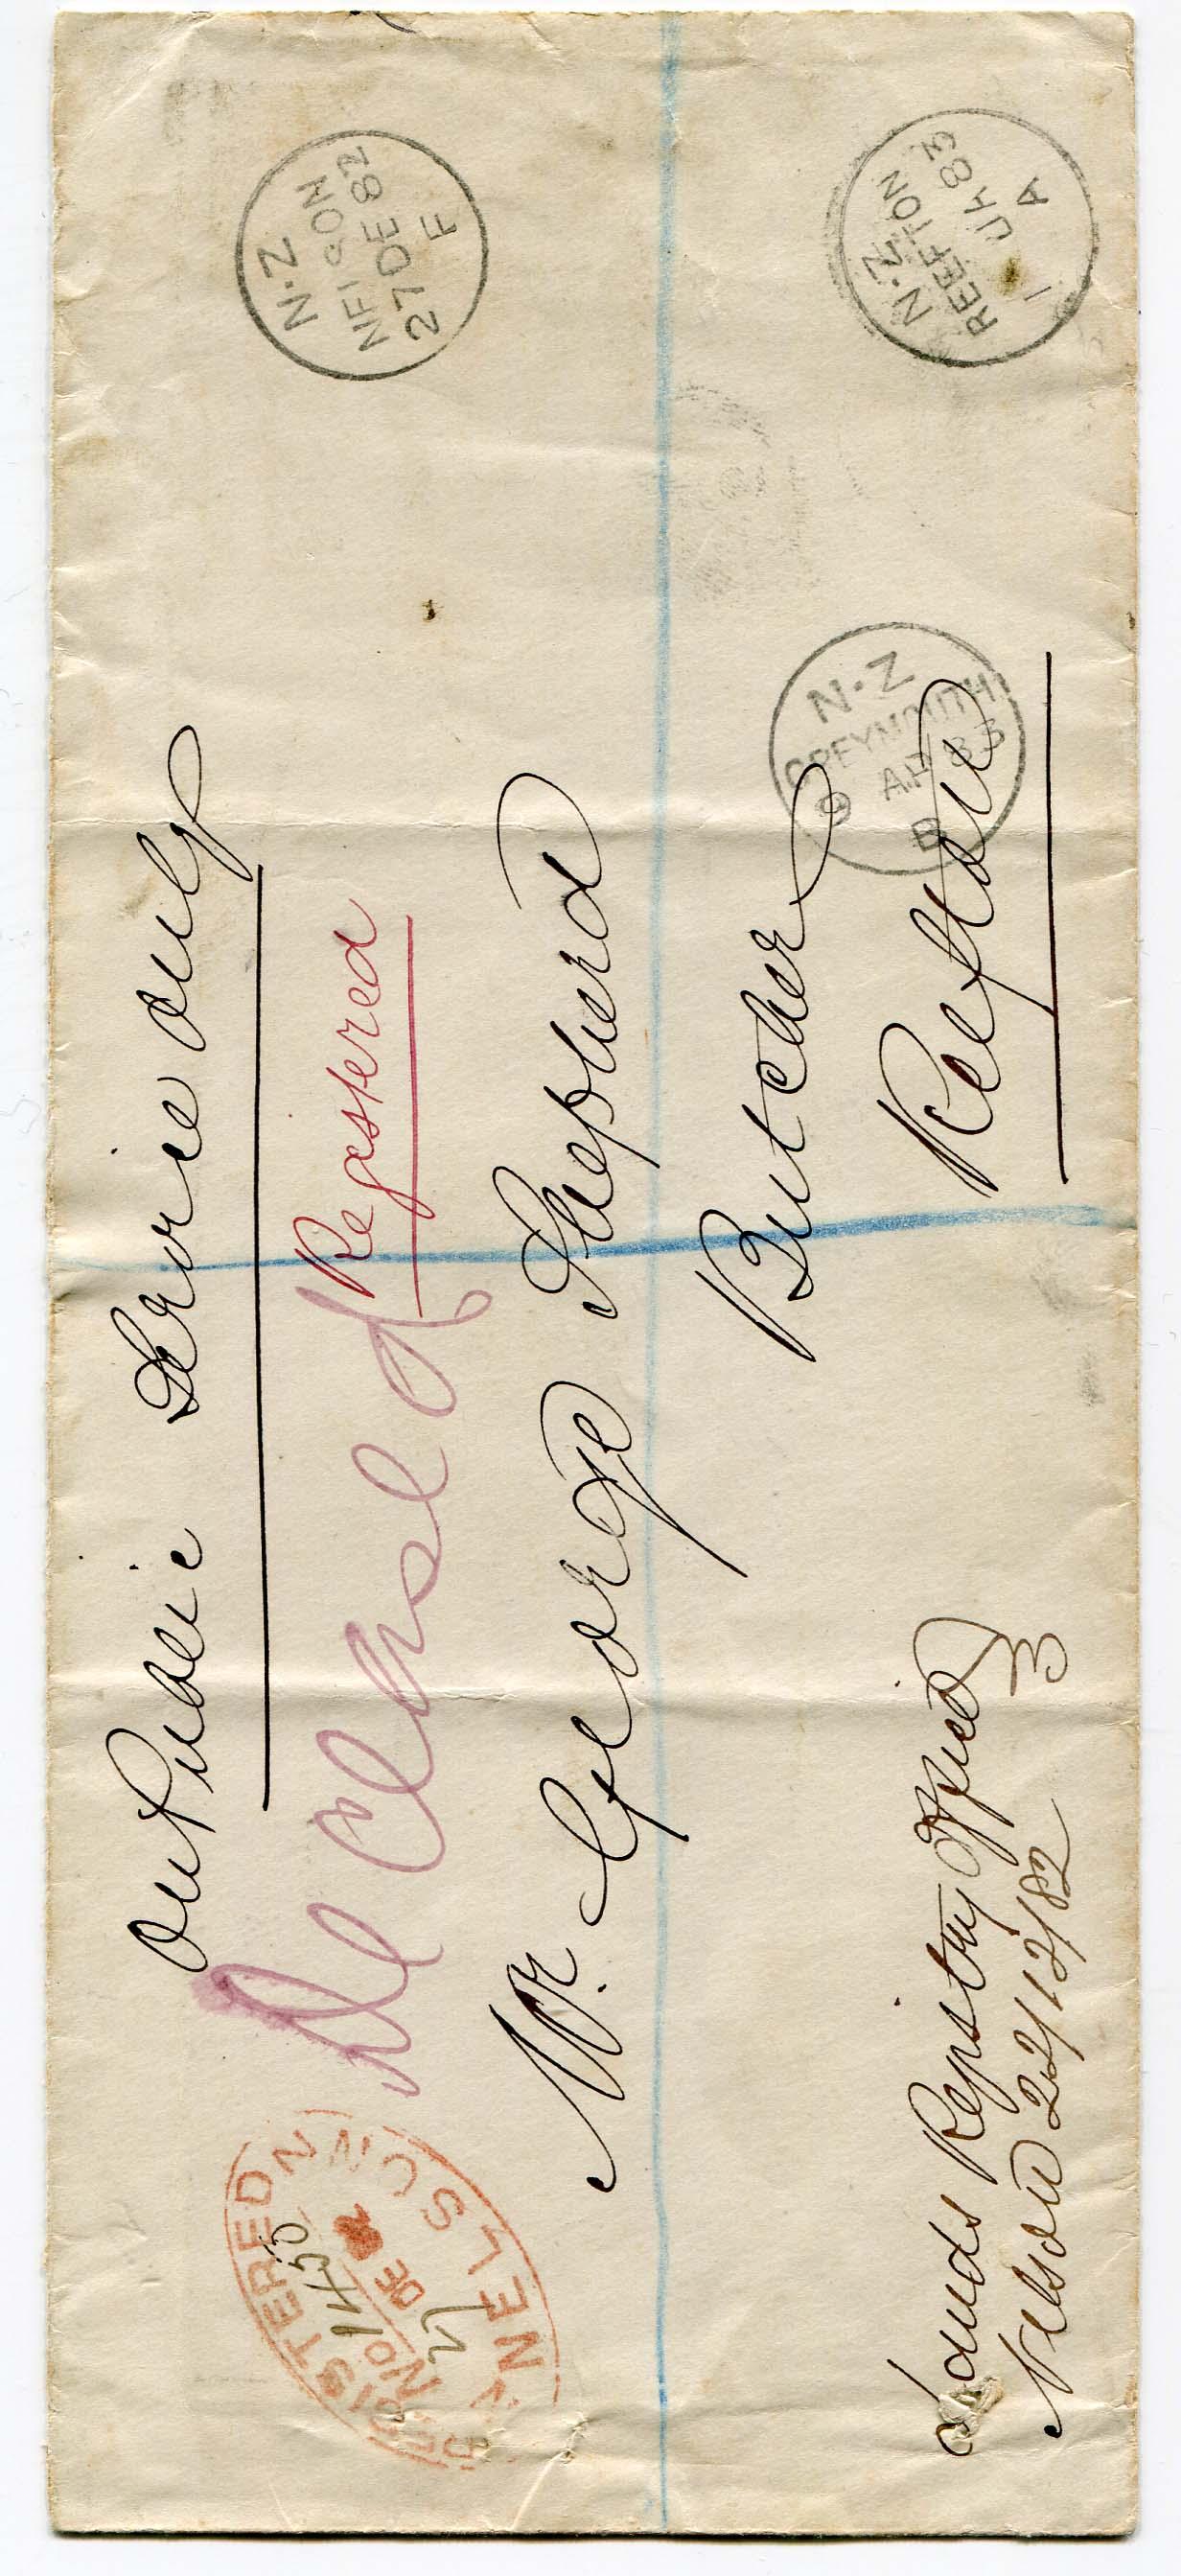 On Public Service only
Registered
De Clpsel
Mr. George Shepherd
Butcher
Reefton
Lands Registry Office
Nelson 22/12/82
REGISTERED
No 1450
27 DE 82
NELSON N.Z
N.Z
NELSON
27 DE 82
F
N.Z
REEFTON
1 JA 83
A
N.Z
GREYMOUTH
AP 83
B